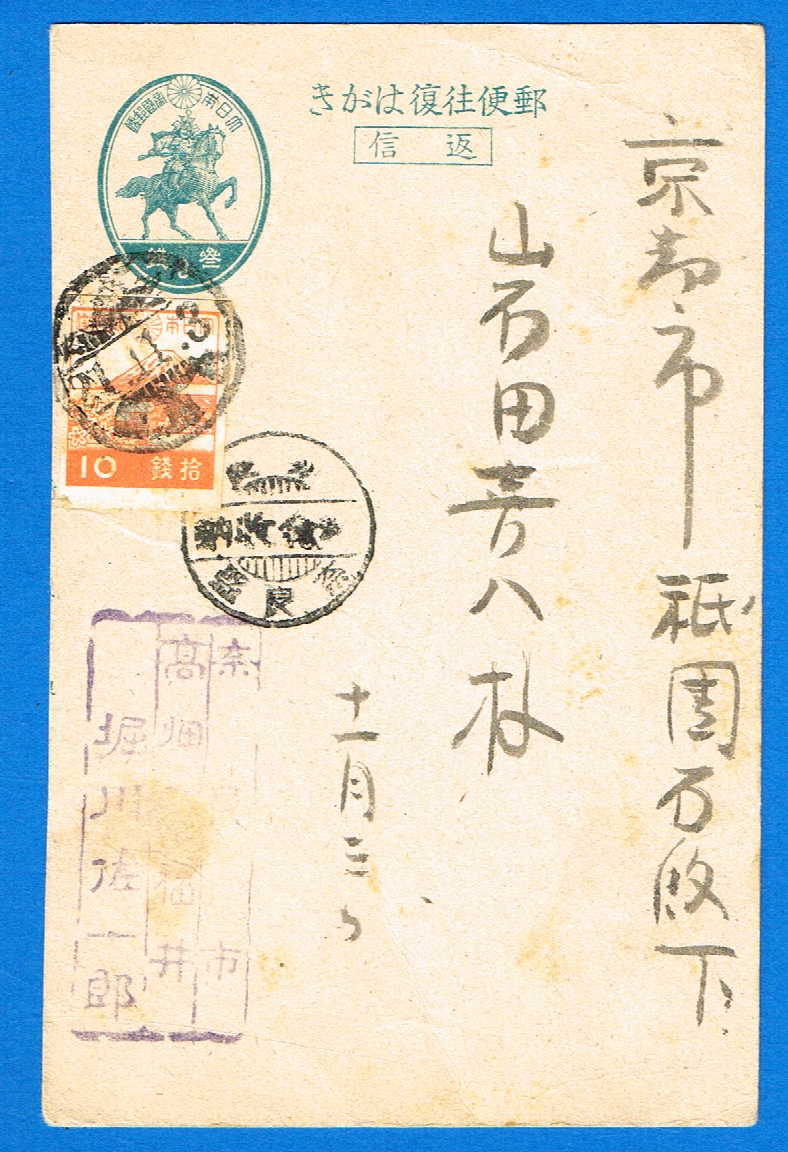 郵便往復はがき
返信
大日本帝國郵便
参銭
10 拾銭
21.11.3
奈良
京都市祇園石段下
山石田喜八様
十一月三日
奈 市
高畑 福井
堀川佐一郎